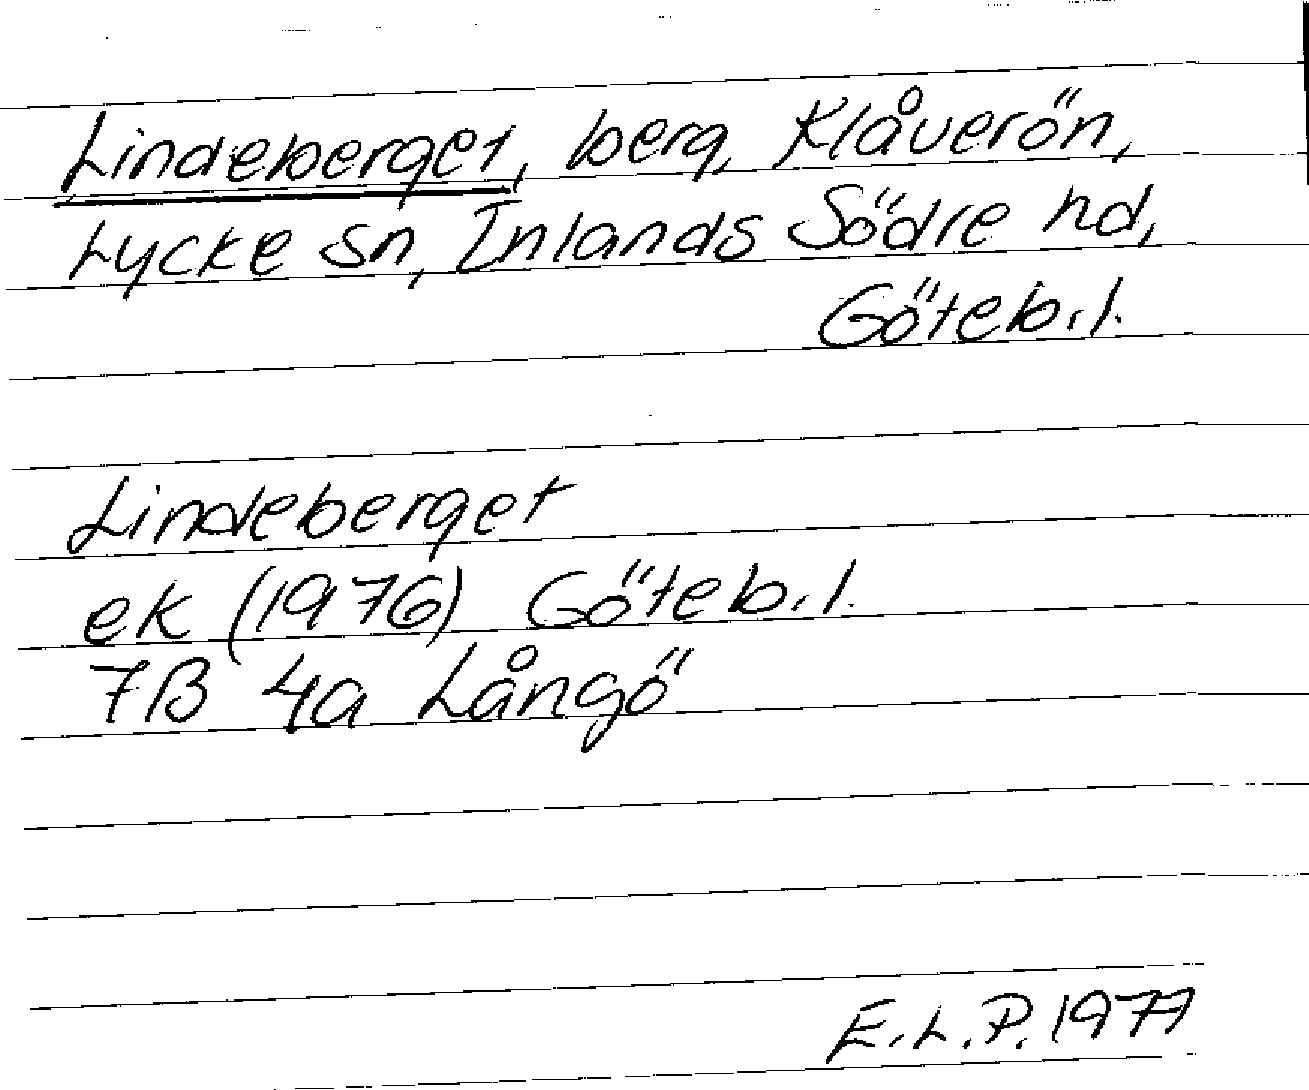 Lindeberget, berg, Klåverön,
Lycke sn, Inlands Södre hd,
Göteb.l.
Lindeberget
ek (1976) Göteb.l.
7B 4a Långö
E.L.P. 1977